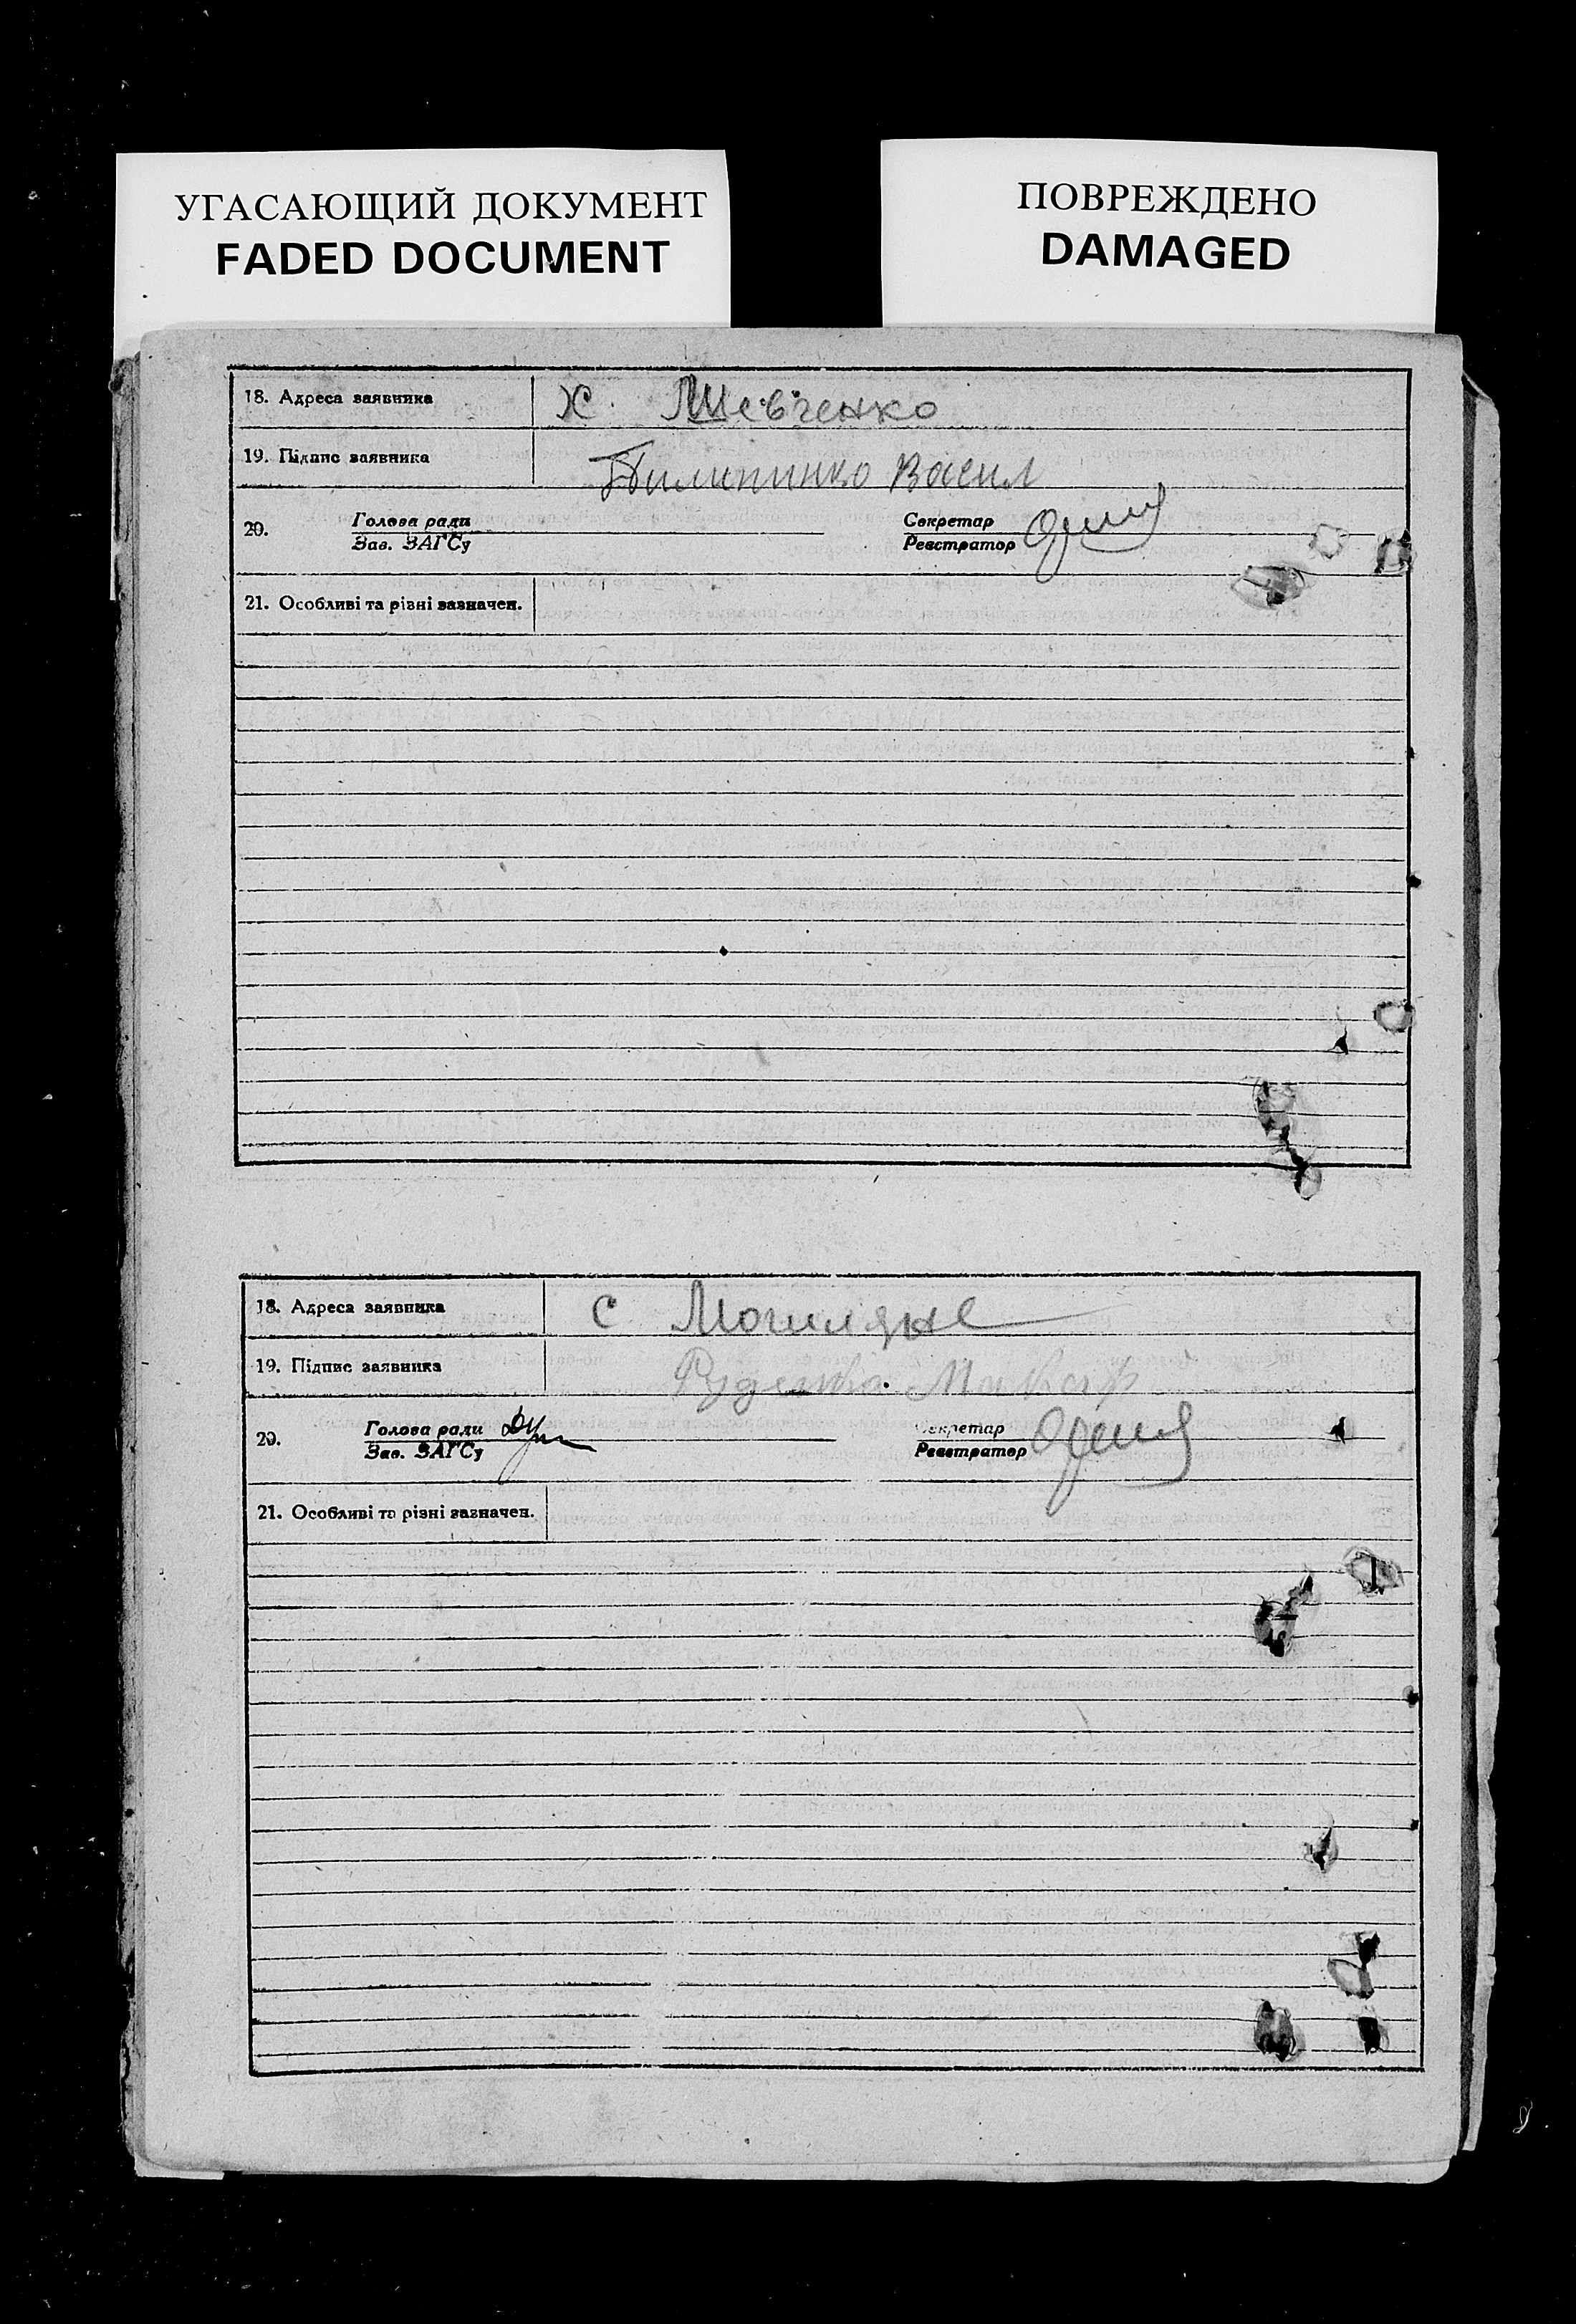 УГАСАЮЩИЙ ДОКУМЕНТ
FADED DOCUMENT
ПОВРЕЖДЕНО
DAMAGED
18. Адреса заявника Х. Шевченко
19. Підпис заявника Пилипинко Васил
20. Голова ради Секретар
Зав. ЗАГСу Реєстратор
21. Особливі та різні зазначен.
18. Адреса заявника С Могиляне
19. Підпис заявника Макар
20. Голова ради Секретар
Зав. ЗАГСу Реєстратор
21. Особливі та різні зазначен.